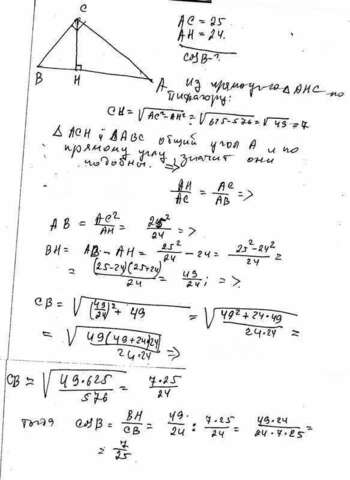 C
B
H
A
AC = 25
AH = 24.
cosB - ?
Из прямоуг-го Δ AHC по
Пифагору:
CH = √AC²-AH² = √625-576 = √49 = 7
Δ ACH и ΔABC общий угол A и по
прямому углу, значит они
подобны. =>
AH/AC = AC/AB =>
AB = AC²/AH = 25²/24 =>
BH = AB - AH = 25²/24 - 24 = 25²-24²/24 =
= (25-24)(25+24)/24 = 49/24; =>
CB = √(49/24)² + 49 = √49²+24²·49/24·24 =
= √49(49+24·24)/24·24 =>
CB = √49·625/576 = 7·25/24
тогда cosB = BH/CB = 49/24 : 7·25/24 = 49·24/24·7·25 =
= 7/25